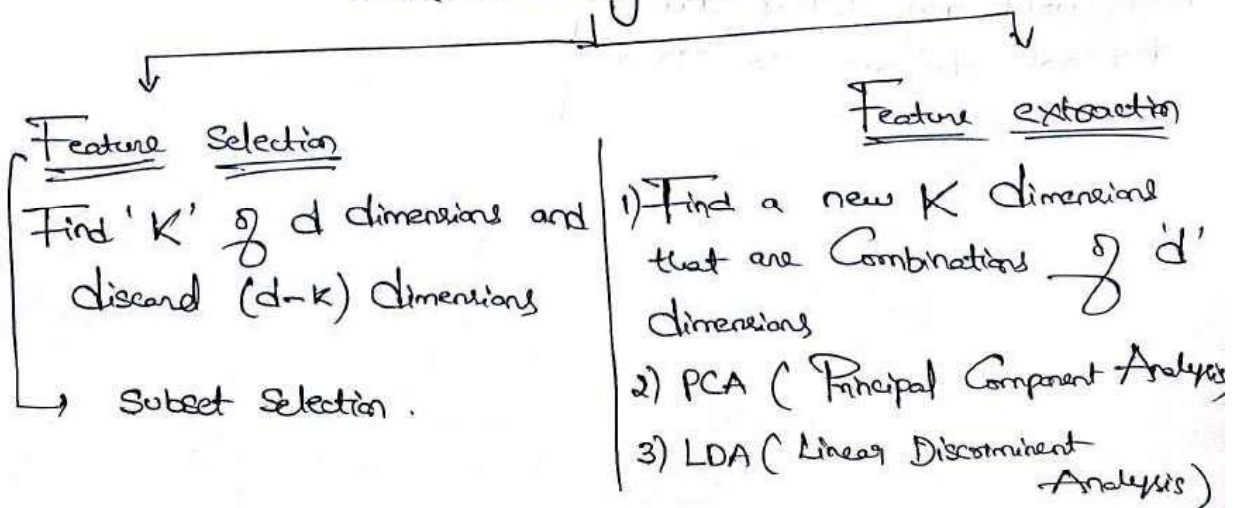 Feature Selection
Find 'K' of d dimensions and
discard (d-k) dimensions
Subset Selection.
Feature extraction
1) Find a new K dimensions
that are Combinations of 'd'
dimensions
2) PCA ( Principal Component Analysis
3) LDA ( Linear Discriminent
Analysis)